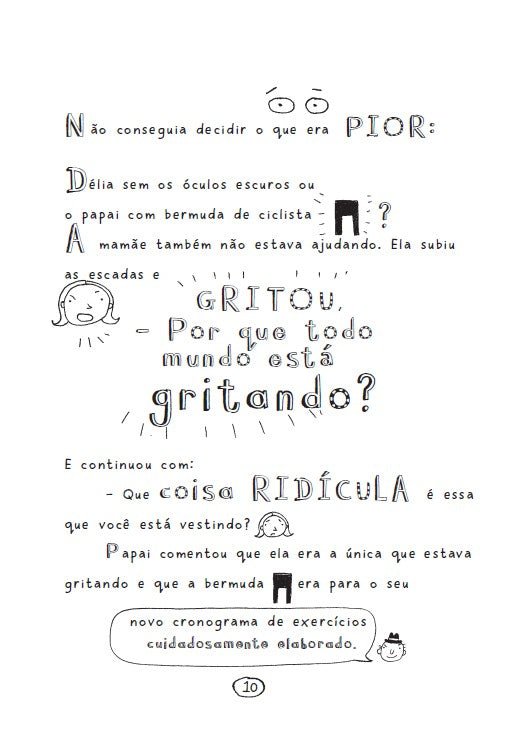 Não conseguia decidir o que era PIOR:
Délia sem os óculos escuros ou
o papai com bermuda de ciclista ?
A mamãe também não estava ajudando. Ela subiu
as escadas e
GRITOU,
- Por que todo
mundo está
gritando?
E continuou com:
- Que coisa RIDÍCULA é essa
que você está vestindo?
Papai comentou que ela era a única que estava
gritando e que a bermuda era para o seu
novo cronograma de exercícios
cuidadosamente elaborado.
10